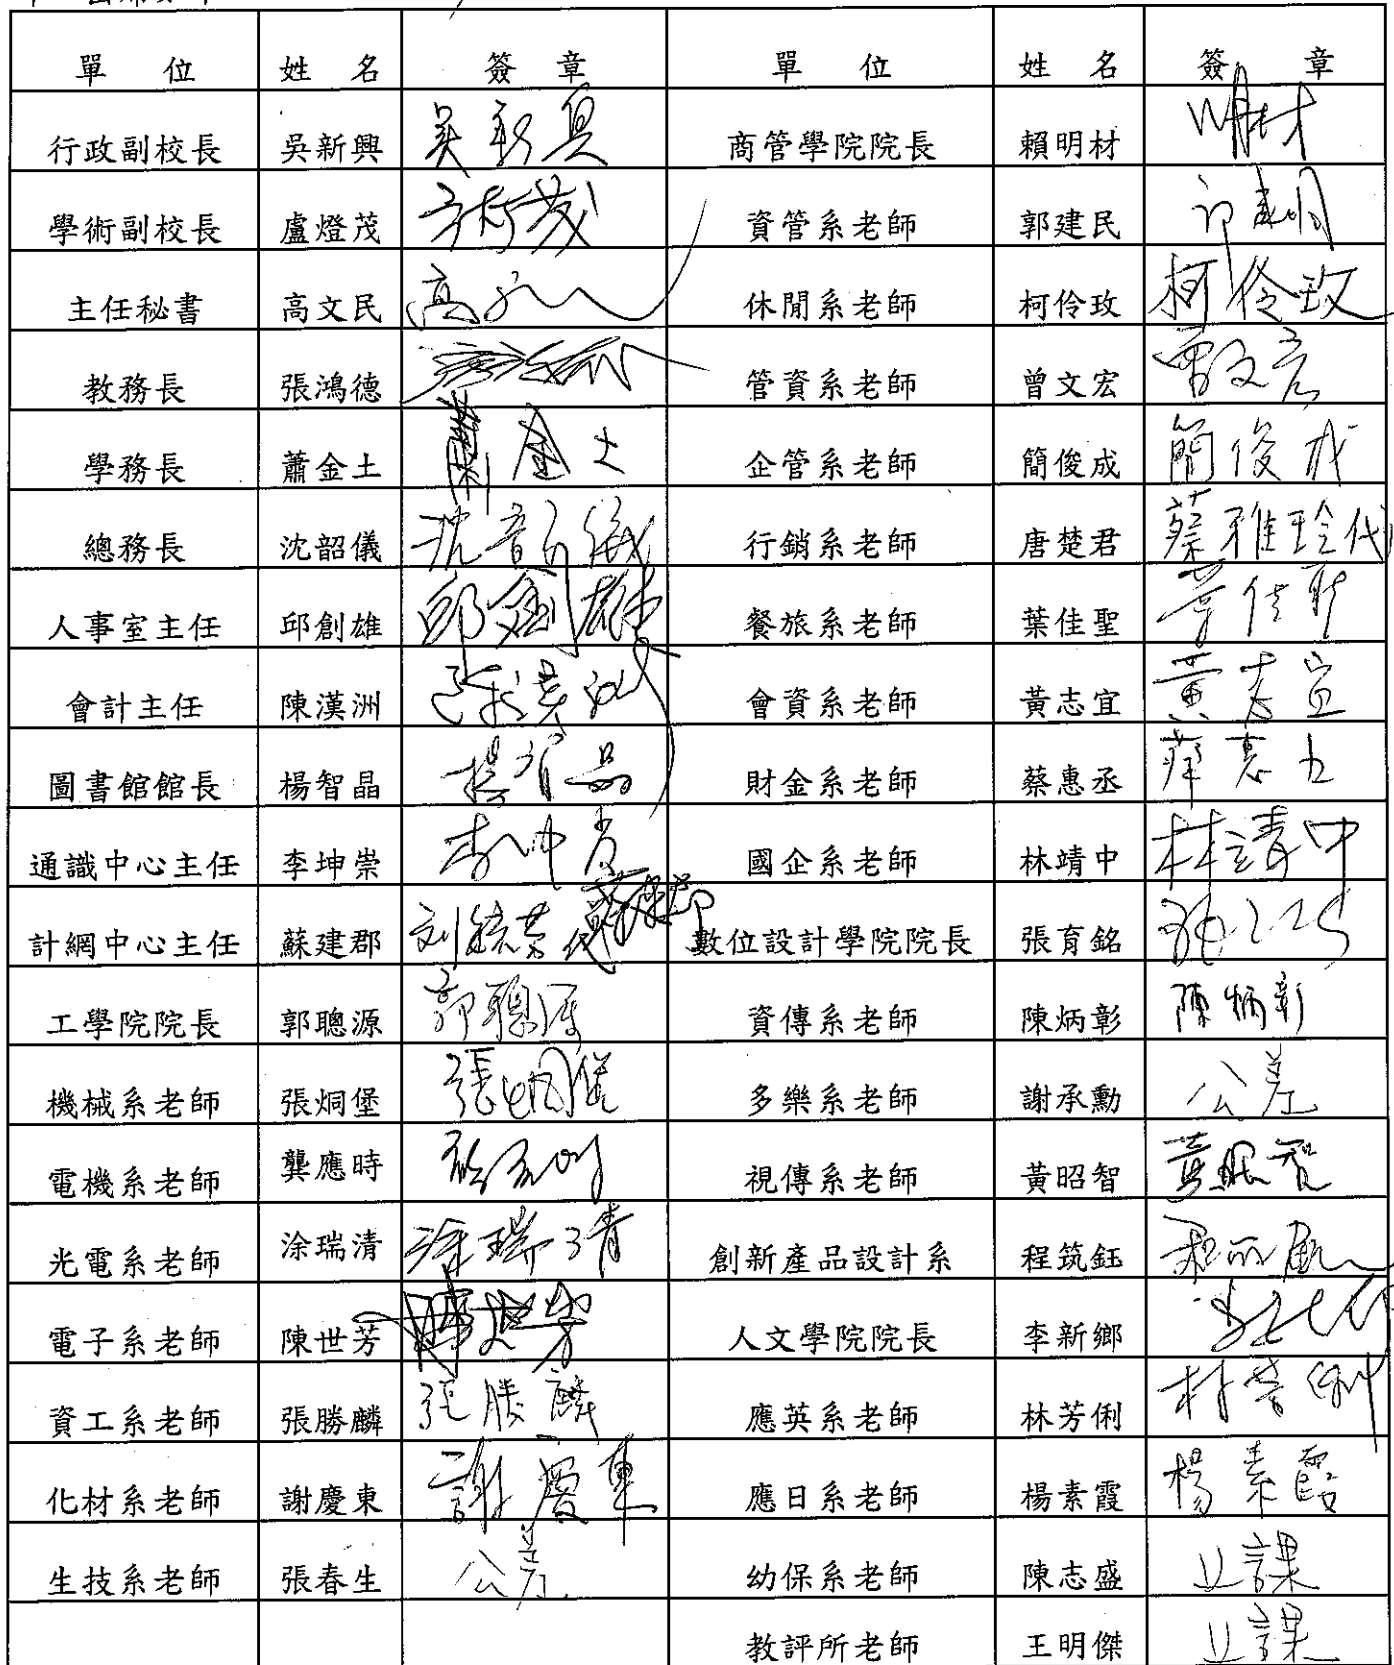 單 位 姓 名 簽 章 單 位 姓 名 簽 章
行政副校長 吳新興 吳新興 商管學院院長 賴明材 明材
學術副校長 盧燈茂 資管系老師 郭建民
主任秘書 高文民 高 休閒系老師 柯伶玫 柯伶玫
教務長 張鴻德 管資系老師 曾文宏 曾文宏
學務長 蕭金土 蕭金土 企管系老師 簡俊成 簡俊成
總務長 沈韶儀 沈韶儀 行銷系老師 唐楚君 蔡雅玲代
人事室主任 邱創雄 邱創雄 餐旅系老師 葉佳聖 葉佳聖
會計主任 陳漢洲 陳漢洲 會資系老師 黃志宜 黃志宜
圖書館館長 楊智晶 楊智晶 財金系老師 蔡惠丞 蔡惠丞
通識中心主任 李坤崇 李坤崇 國企系老師 林靖中 林靖中
計網中心主任 蘇建郡 數位設計學院院長 張育銘
工學院院長 郭聰源 郭聰源 資傳系老師 陳炳彰 陳炳彰
機械系老師 張烔堡 張烔堡 多樂系老師 謝承勳 公差
電機系老師 龔應時 視傳系老師 黃昭智 黃昭智
光電系老師 涂瑞清 涂瑞清 創新產品設計系 程筑鈺
電子系老師 陳世芳 陳世芳 人文學院院長 李新鄉
資工系老師 張勝麟 張勝麟 應英系老師 林芳俐 林芳俐
化材系老師 謝慶東 謝慶東 應日系老師 楊素霞 楊素霞
生技系老師 張春生 公差 幼保系老師 陳志盛 上課
教評所老師 王明傑 上課